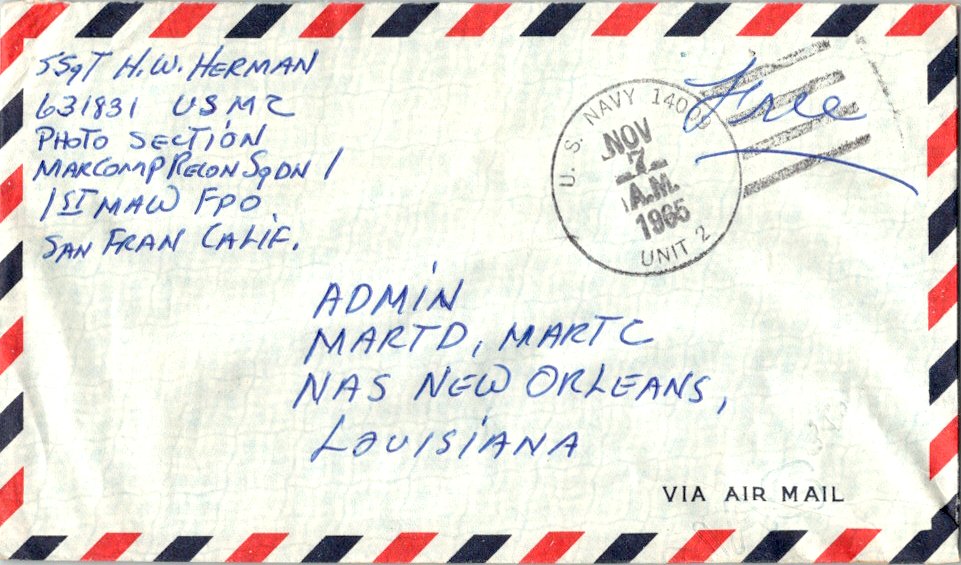 SSgT H.W. HERMAN
631831 USMC
PHOTO SECTION
MARCOMPRECONSQDN 1
1ST MAW FPO
SAN FRAN CALIF.
U.S. NAVY 14009
NOV
7
A.M.
1965
UNIT 2
Free
ADMIN
MARTD, MARTC
NAS NEW ORLEANS,
LOUISIANA
VIA AIR MAIL